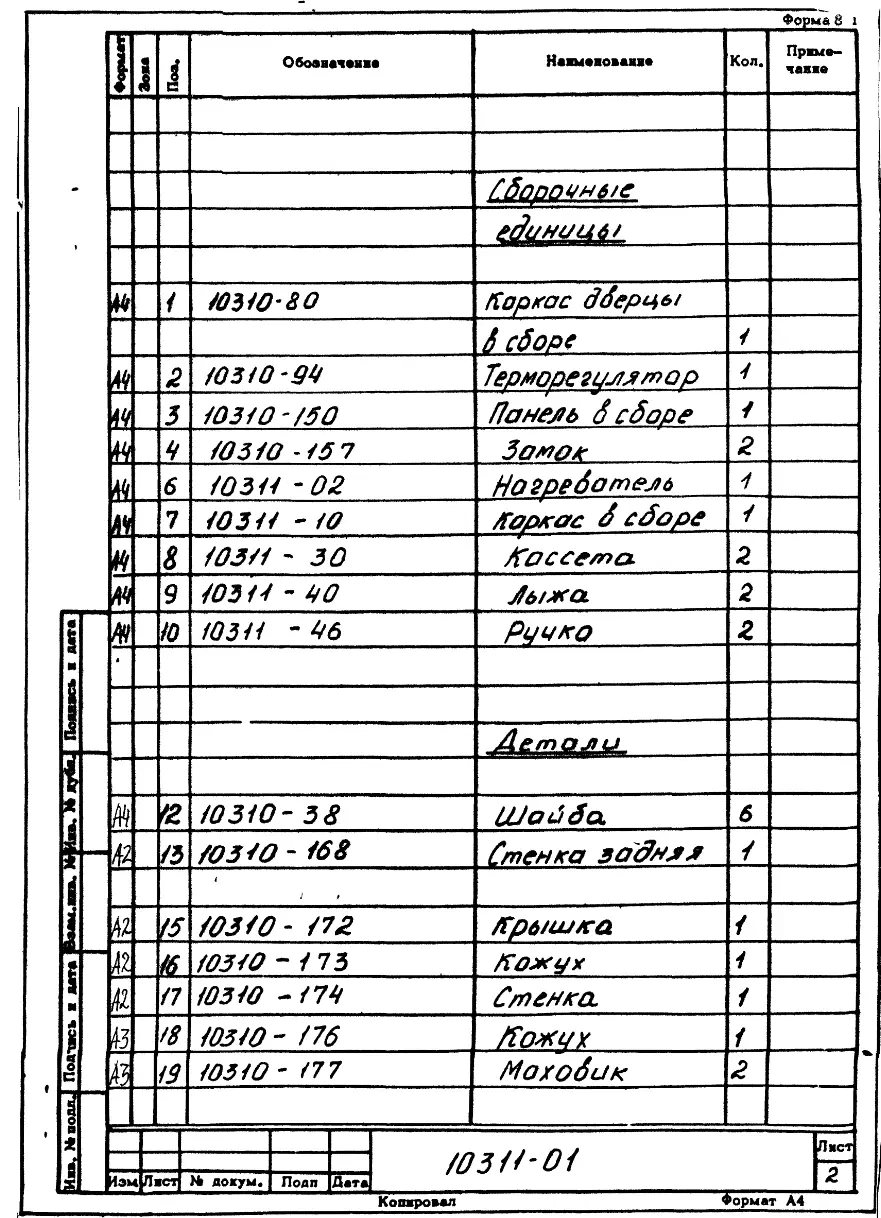 Форма 8 1
Формат Зона Поз. Обозначение Наименование Кол. Приме-
чание
Сборочные
единицы
А4 1 10310-80 Каркас дверцы
в сборе 1
А4 2 10310-94 Терморегулятор 1
А4 3 10310-150 Панель в сборе 1
А4 4 10310-157 Замок 2
А4 6 10311-02 Нагреватель 1
А4 7 10311-10 Каркас в сборе 1
А4 8 10311-30 Кассета 2
А4 9 10311-40 Лыжа 2
А4 10 10311-46 Ручка 2
Детали
А4 12 10310-38 Шайба 6
А2 13 10310-168 Стенка задняя 1
А2 15 10310-172 Крышка 1
А2 16 10310-173 Кожух 1
А2 17 10310-174 Стенка 1
А3 18 10310-176 Кожух 1
А3 19 10310-177 Маховик 2
Подпись и дата
Инв. № дубл.
Взам.инв. №
Подпись и дата
Инв. № подл.
10311-01
Лист
2
Изм Лист № докум. Подп Дата
Копировал Формат А4